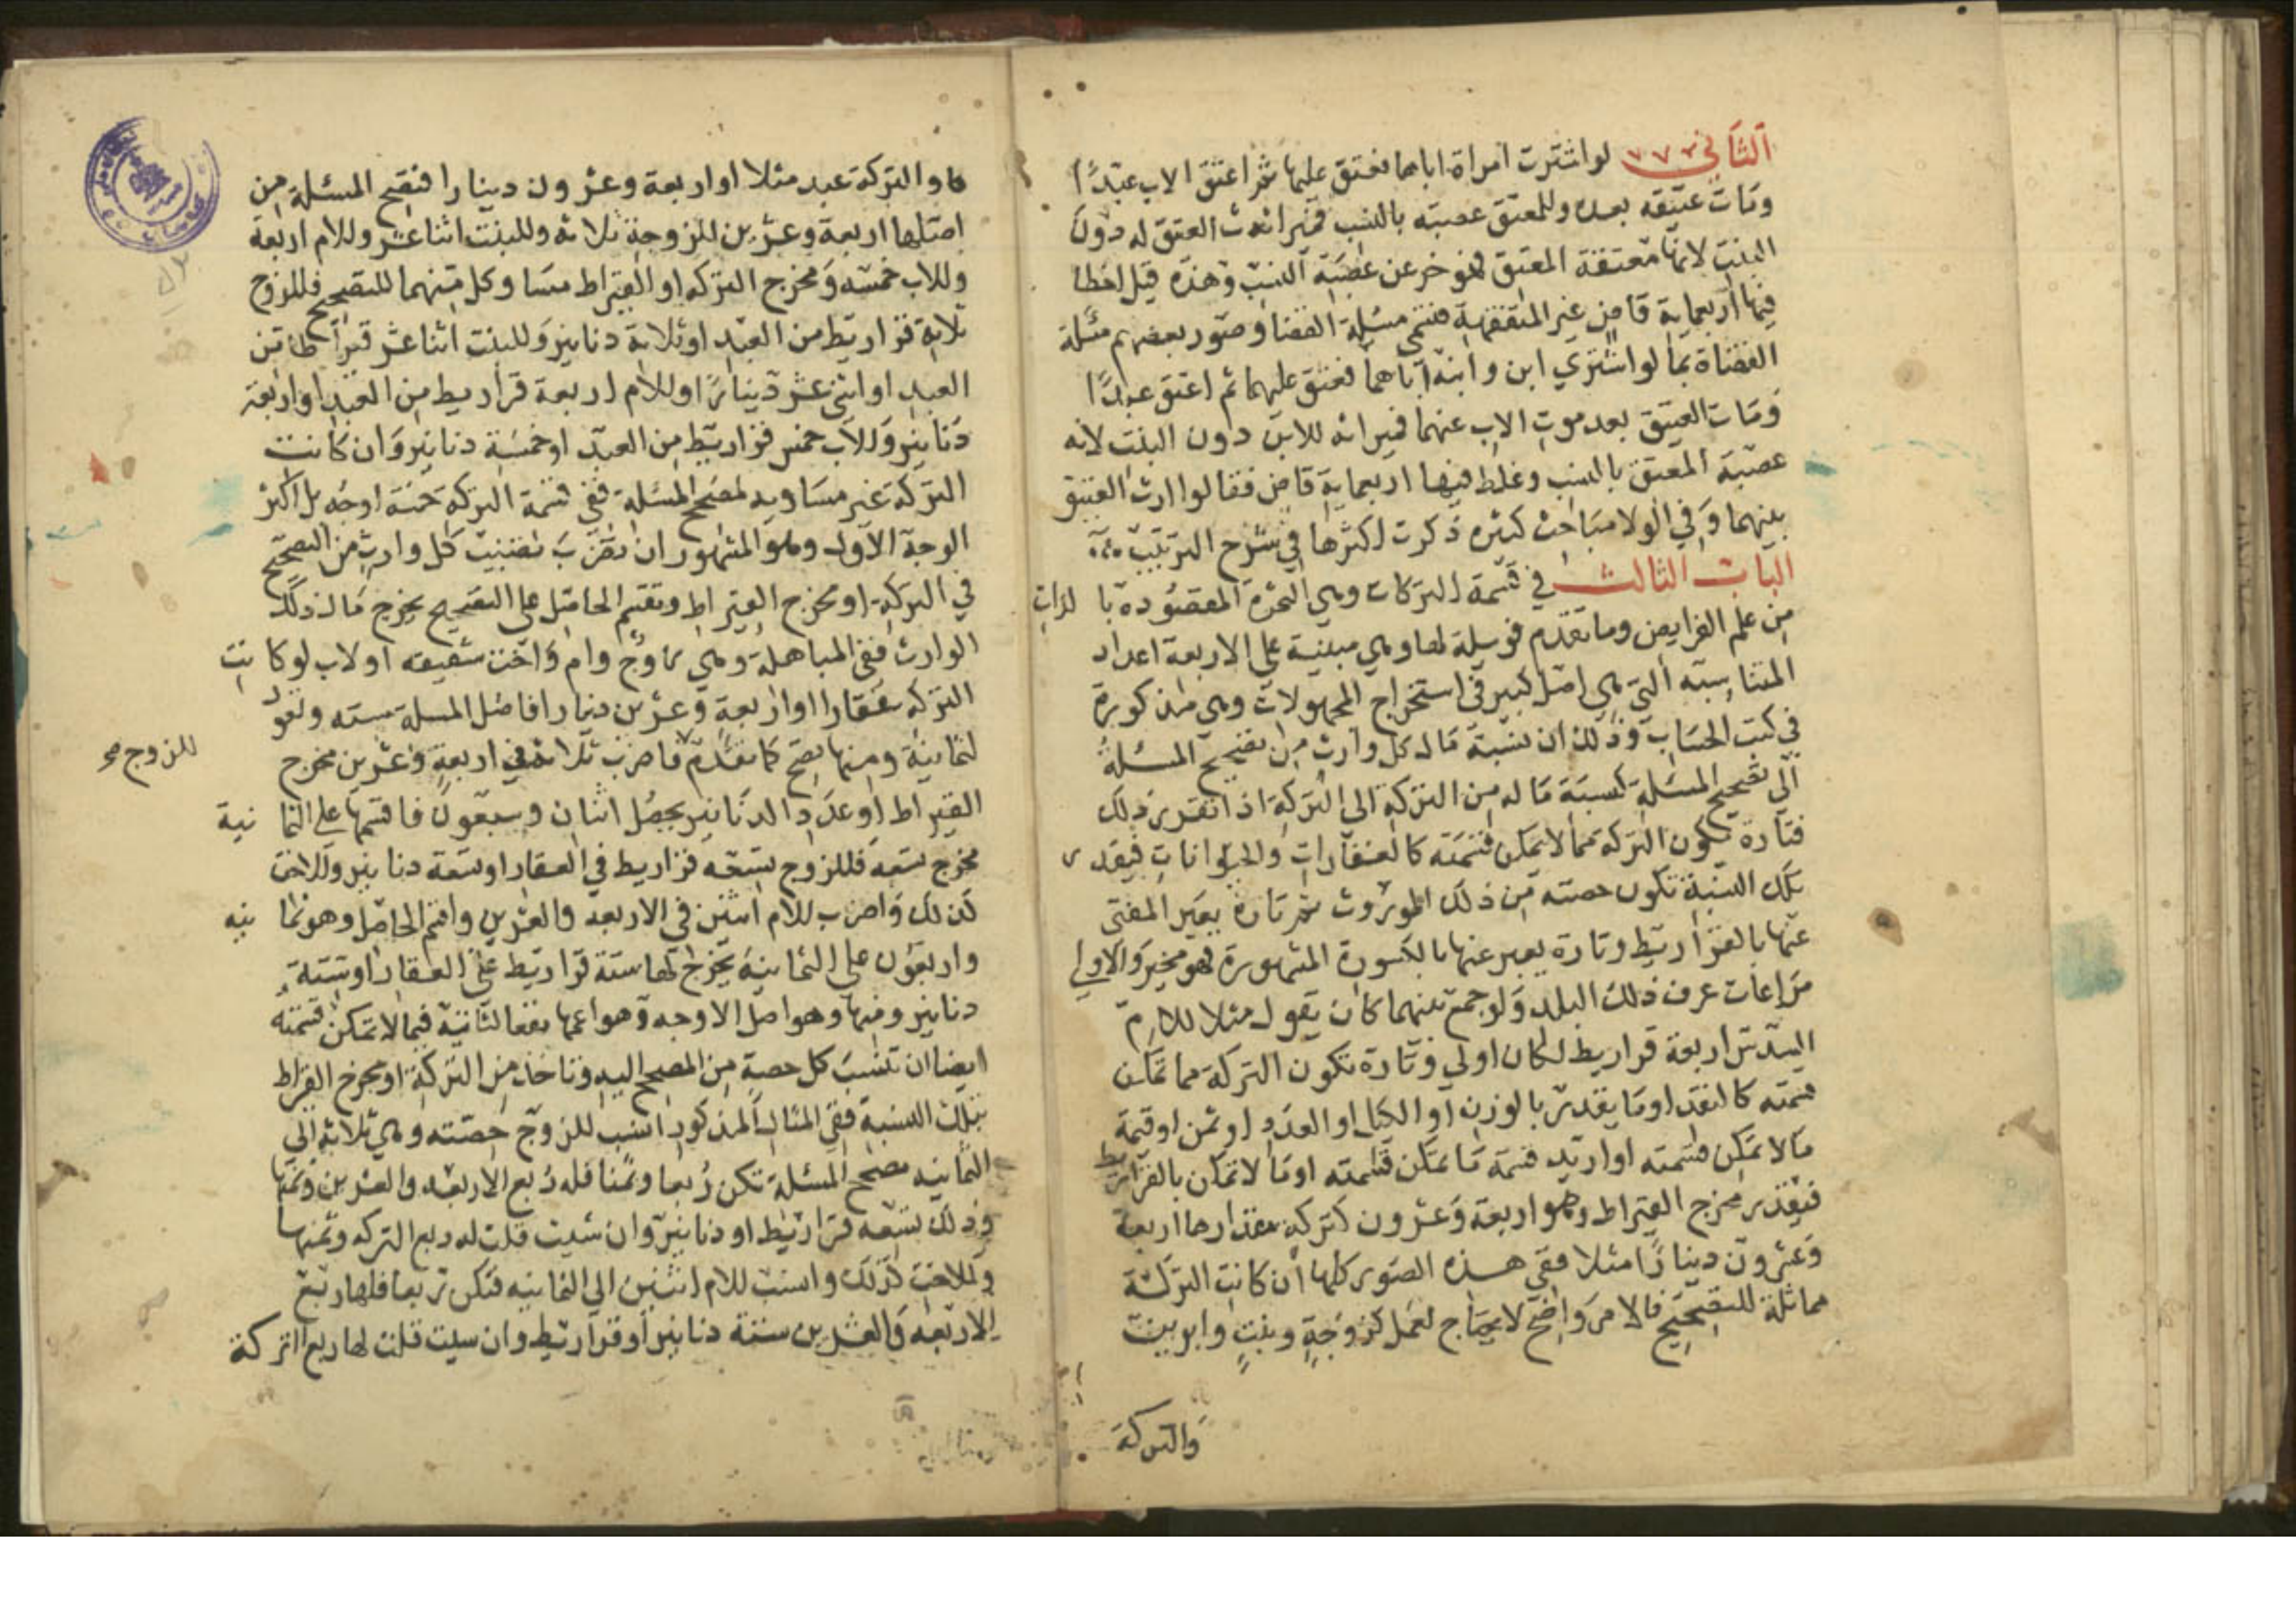 الثاني لو اشترت امراة اباها فعتق عليها ثم اعتق الاب عبدًا
ومات عتيقه بعده وللمعتق عصبة بالنسب فميراث العتق له دون
البنت لانها معتقة المعتق فهو خر عن عصبة النسب وهذه قيل اخطا
فيها اربعماية قاض غير المتفقهة فتسمى مسئلة القضا وصور بعضهم مسئلة
القضاة بما لو اشترى ابن وابنة اباهما فعتق عليهما ثم اعتق عبدًا
ومات العتيق بعد موت الاب عنهما فميراثه للابن دون البنت لانه
عصبة المعتق بالنسب وغلط فيها اربعماية قاض فقالوا ارث العتيق
بينهما وفي الولا مباحث كثيره ذكرت اكثرها في شرح الترتيب
الباب الثالث في قسمة التركات وهي الثمرة المقصودة بالذات
من علم الفرايض وما تقدم فوسيلة لها وهي مبنية على الاربعة اعداد
المتناسبة التي هي اصل كبير في استخراج المجهولات وهي مذكورة
في كتب الحساب وذلك ان نسبة ما لكل وارث من تصحيح المسئلة
الى تصحيح المسئلة كنسبة ما له من التركة الى التركة اذا تقرر ذلك
فتارة تكون التركة مما لا تمكن قسمته كالعقارات والحيوانات فبقدر
تلك النسبة تكون حصته من ذلك الموروث ثم تارة يعبر المفتى
عنها بالقراريط وتارة يعبر عنها بالكسورة المشهورة فهو مخير والاولى
مراعات عرف ذلك البلد ولو جمع بينهما كان يقول مثلا للام
السدس اربعة قراريط لكان اولي وتارة تكون التركة مما تمكن
قسمته كالنقد او ما يقدر بالوزن او الكيل او العدد او ثمن او قيمة
ما لا تمكن قسمته او اريد قسمة ما تمكن قسمته او ما لا تمكن بالقراريط
فيقدر مخرج القيراط وهو اربعة وعشرون كتركة مقدارها اربعة
وعشرون دينارًا مثلا ففي هذه الصور كلها ان كانت التركة
مماثلة للتصحيح فالامر واضح لا يحتاج لعمل كزوجة وبنت وابوين
والتركة
والتركة عبد مثلا او اربعة وعشرون دينارا فتصح المسئلة من
اصلها اربعة وعشرين للزوجة ثلاثة وللبنت اثنا عشر وللام اربعة
وللاب خمسه ومخرج التركه او القيراط مساو كل منهما للتصحيح فللزوج
ثلاثة قراريط من العبد او ثلاثة دنانير وللبنت اثنا عشر قيراطا من
العبد او اثنى عشر دينارًا وللام اربعة قراريط من العبد او اربعة
دنانير وللاب خمس قراريط من العبد او خمسة دنانير وان كانت
التركة غير مساويه لمصحح المسئلة ففي قسمة التركة خمسة اوجه بل اكثر
الوجه الاول وهو المشهور ان تضرب نصيب كل وارث من التصحيح
في التركة او مخرج القيراط وتقسم الحاصل على التصحيح يخرج ما لذلك
الوارث ففي المباهلة وهي زوج وام واخت شقيقه او لاب لو كانت
التركه عقارا او اربعة وعشرين دينارا فاصل المسلة بسته وتعول
لثمانية ومنها تصح كما تقدم فاضرب ثلاثة في اربعة وعشرين مخرج
للزوج صح
القيراط او عدد الدنانير يحصل اثنان وسبعون فاقسمها على الثمانية
مخرج تسعة فللزوج تسعه قراريط في العقار او تسعة دنانير وللاخت
كذلك واضرب للام اثنين في الاربعه والعشرين واقسم الحاصل وهو ثمانيه
واربعون على الثمانية يخرج لها ستة قراريط على العقار او ستة
دنانير ومنها وهو اصل الاوجه وهو اعمها نفعا لتاتيه فيما لا تمكن قسمته
ايضا ان تنسب كل حصة من المصحح اليه وتاخذ من التركة او مخرج القيراط
بتلك النسبة ففي المثال المذكور انسب للزوج حصته وهي ثلاثة الى
الثمانيه مصحح المسئلة تكن ربعا وثمنا فله ربع الاربعه والعشرين وثمنها
وذلك تسعه قراريط او دنانير وان شيت قلت له ربع التركه وثمنها
وللاخت كذلك وانسب للام اثنين الى الثمانيه فتكن ربعا فلها ربع
الاربعه والعشرين ستة دنانير او قراريط وان شيت قلت لها ربع التركة